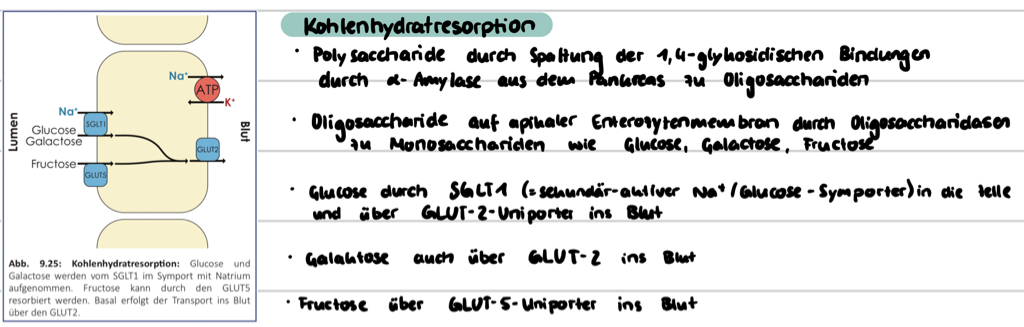 Lumen
Na⁺
Glucose
Galactose
Fructose
SGLT1
GLUT5
Na⁺
ATP
K⁺
GLUT2
Blut
Abb. 9.25: Kohlenhydratresorption: Glucose und
Galactose werden vom SGLT1 im Symport mit Natrium
aufgenommen. Fructose kann durch den GLUT5
resorbiert werden. Basal erfolgt der Transport ins Blut
über den GLUT2.
Kohlenhydratresorption
· Polysaccharide durch Spaltung der 1,4-glykosidischen Bindungen
durch α-Amylase aus dem Pankreas zu Oligosacchariden
· Oligosaccharide auf apikaler Enterozytenmembran durch Oligosaccharidasen
zu Monosacchariden wie Glucose, Galactose, Fructose
· Glucose durch SGLT1 (=sekundär-aktiver Na⁺/Glucose-Symporter) in die Zelle
und über GLUT-2-Uniporter ins Blut
· Galaktose auch über GLUT-2 ins Blut
· Fructose über GLUT-5-Uniporter ins Blut